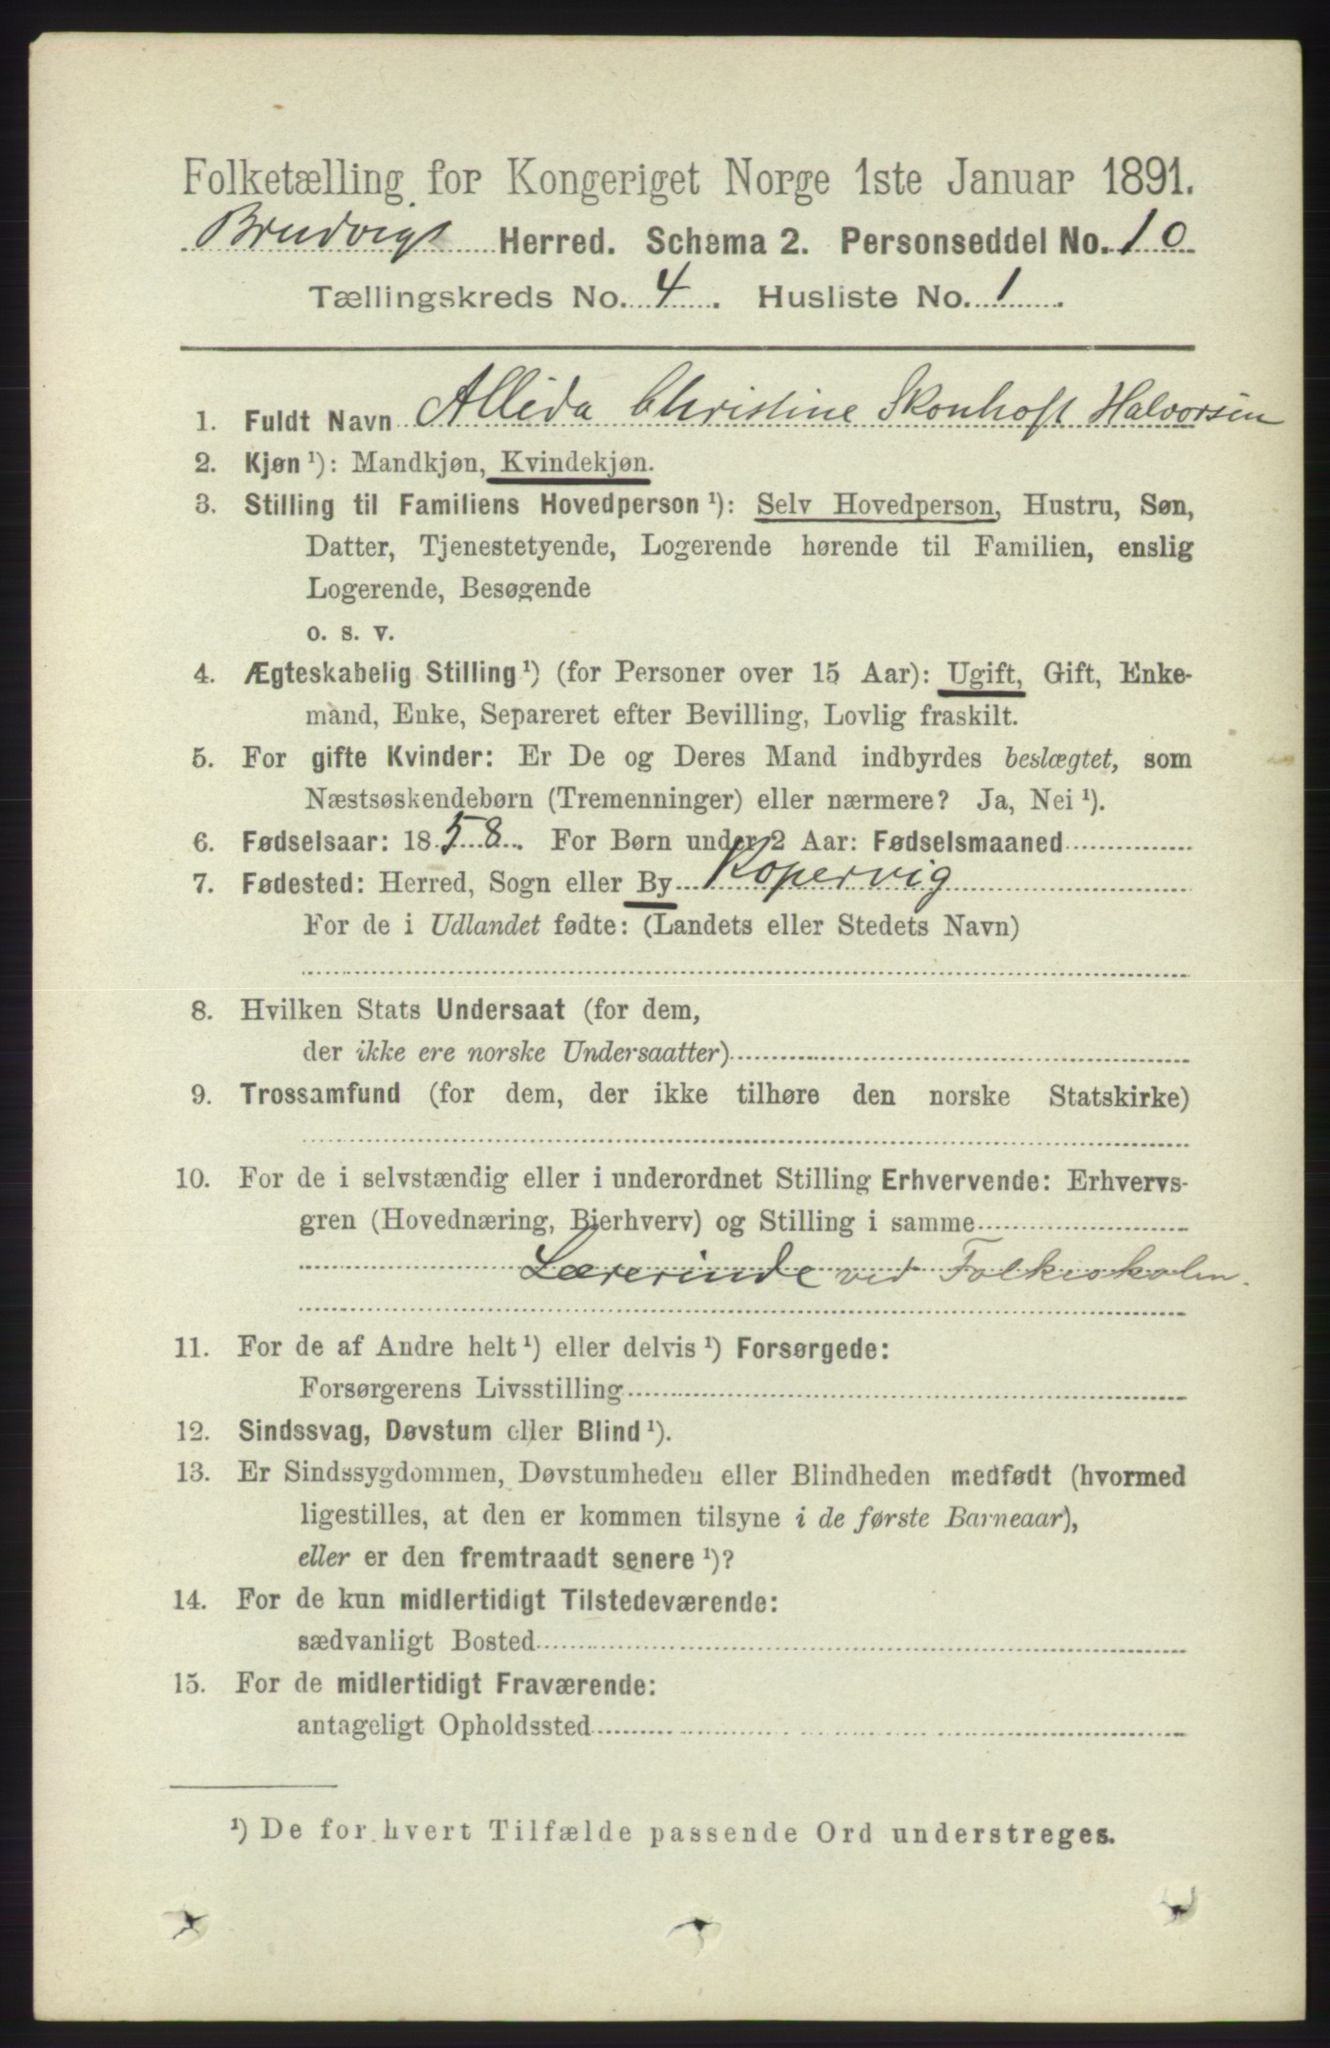 Folketælling for Kongeriget Norge 1ste Januar 1891.
Bruvigs Herred. Schema 2. Personseddel No. 10
Tællingskreds No. 4. Husliste No. 1.
1. Fuldt Navn Allida Christine Skonhoft Halvorsen
2. Kjøn ¹): Mandkjøn, Kvindekjøn.
3. Stilling til Familiens Hovedperson ¹): Selv Hovedperson, Hustru, Søn,
Datter, Tjenestetyende, Logerende hørende til Familien, enslig
Logerende, Besøgende
o. s. v.
4. Ægteskabelig Stilling ¹) (for Personer over 15 Aar): Ugift, Gift, Enke-
mand, Enke, Separeret efter Bevilling, Lovlig fraskilt.
5. For gifte Kvinder: Er De og Deres Mand indbyrdes beslægtet, som
Næstsøskendebørn (Tremenninger) eller nærmere? Ja, Nei ¹).
6. Fødselsaar: 1858. For Børn under 2 Aar: Fødselsmaaned
7. Fødested: Herred, Sogn eller By Kopervig
For de i Udlandet fødte: (Landets eller Stedets Navn)
8. Hvilken Stats Undersaat (for dem,
der ikke ere norske Undersaatter)
9. Trossamfund (for dem, der ikke tilhøre den norske Statskirke)
10. For de i selvstændig eller i underordnet Stilling Erhvervende: Erhvervs-
gren (Hovednæring, Bierhverv) og Stilling i samme
Lærerinde ved Folkeskolen.
11. For de af Andre helt ¹) eller delvis ¹) Forsørgede:
Forsørgerens Livsstilling
12. Sindssvag, Døvstum eller Blind ¹).
13. Er Sindssygdommen, Døvstumheden eller Blindheden medfødt (hvormed
ligestilles, at den er kommen tilsyne i de første Barneaar),
eller er den fremtraadt senere ¹)?
14. For de kun midlertidigt Tilstedeværende:
sædvanligt Bosted
15. For de midlertidigt Fraværende:
antageligt Opholdssted
¹) De for hvert Tilfælde passende Ord understreges.